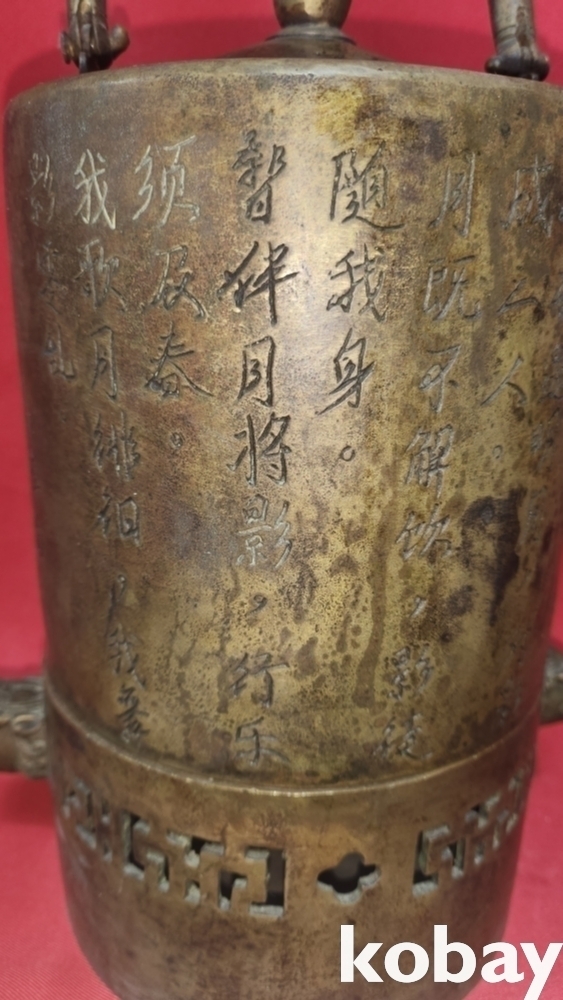 成三人。
月既不解饮，影徒
隨我身。
暫伴月將影，行乐
须及春。
我歌月徘徊，我舞
影零乱
kobay